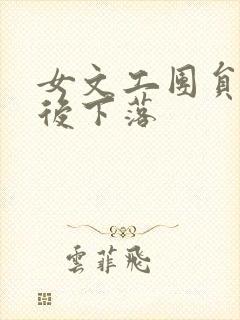 女文工团員
後下落
雲菲飛